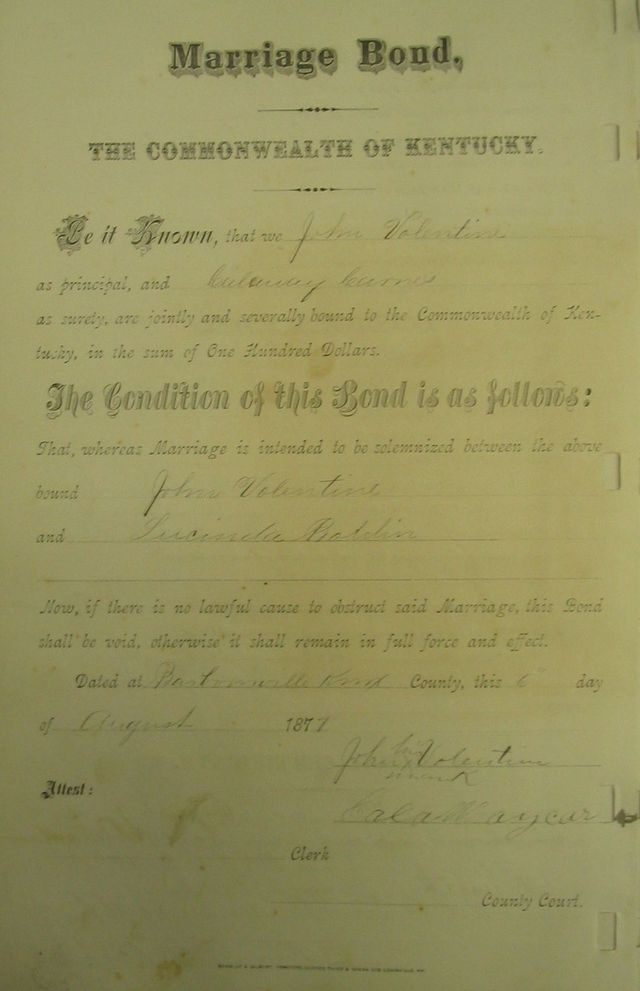 Marriage Bond.
THE COMMONWEALTH OF KENTUCKY.
Be it Known, that we John Valentine
as principal, and Calaway Carnes
as surety, are jointly and severally bound to the Commonwealth of Ken-
tucky, in the sum of One Hundred Dollars.
The Condition of this Bond is as follows:
That, whereas Marriage is intended to be solemnized between the above
bound John Valentine
and Lucinda
Now, if there is no lawful cause to obstruct said Marriage, this Bond
shall be void, otherwise it shall remain in full force and effect.
Dated at Barbourville Knox County, this 6th day
of August 1877
John his Valentine
mark
Attest:
Clerk
County Court.